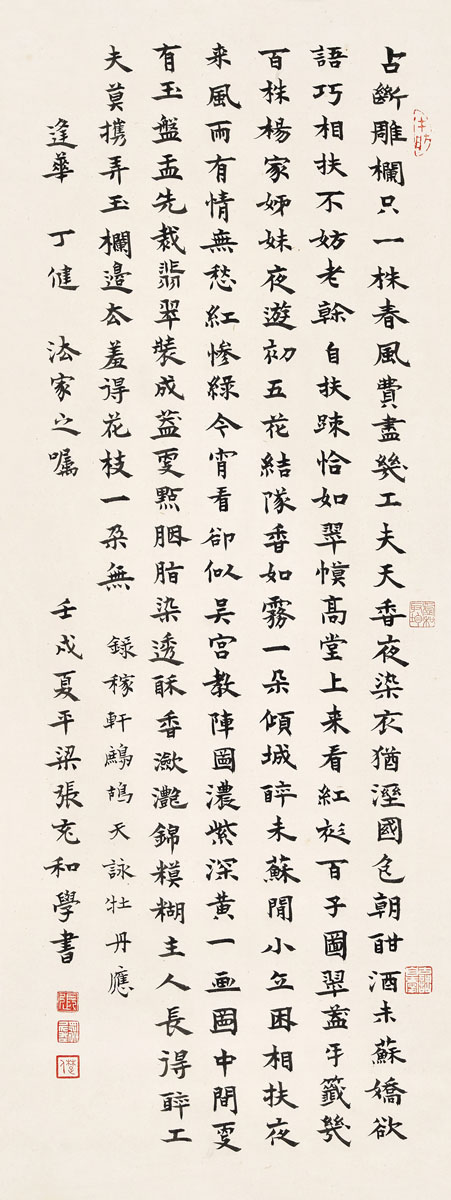 占斷雕欄只一株春風費盡幾工夫天香夜染衣猶溼國色朝酣酒未蘇嬌欲
語巧相扶不妨老榦自扶踈恰如翠幙高堂上来看紅衫百子圖翠蓋牙籤幾
百株楊家姊妹夜遊初五花結隊香如霧一朵傾城醉未蘇閒小立困相扶夜
来風雨有情無愁紅慘綠今宵看卻似吳宮教陣圖濃紫深黃一画圖中間更
有玉盤盂先裁翡翠裝成蓋更點胭脂染透酥香瀲灎錦糢糊主人長得醉工
夫莫攜弄玉欄邊去羞得花枝一朵無 錄稼軒鷓鴣天詠牡丹應
逢華 丁健 法家之囑 壬戌夏平梁張充和學書